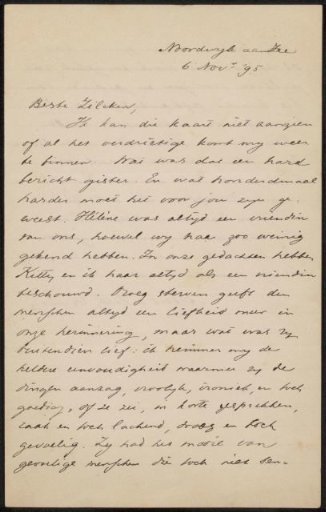 Noordwijk aan Zee
6 Nov. '95
Beste Zilcken,
Ik kan die kaart niet aanzien
of al het verdrietige komt my weer
te binnen. Wat was dat een hard
bericht gister. En wat honderdmaal
harder moet het voor jou zyn ge-
weest. Hélène was altyd een vriendin
van ons, hoewel wy haar zoo weinig
gekend hebben. In onze gedachten hebben
Kitty en ik haar altyd als een vriendin
beschouwd. Vroeg sterven geeft den
menschen altyd een liefheid meer in
onze herinnering, maar wat was zy
bovendien lief: ik herinner my de
heldere eenvoudigheid waarmee zy de
dingen aanzag, vroolyk, ironisch, en toch
goedig, of ze zei, in korte gesprekken,
vaak en toch lachend, droog en toch
gevoelig. Zy had het mooie van
geestige menschen die toch niet den-